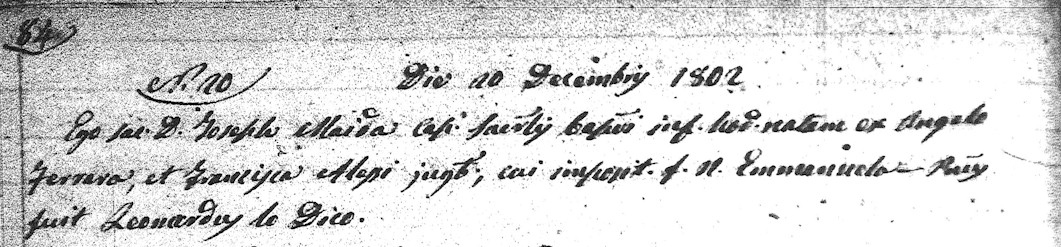 84
N. 20 Die 20 Decembris 1802
Ego Sac. D. Joseph Maida Cap. Sacrlis Baptvi inf. hod. natam ex Angelo
Ferrara, et Francisca Alesi jugb., cui imposit. f. N. Emmanuela Patrus
fuit Leonardus lo Dico.